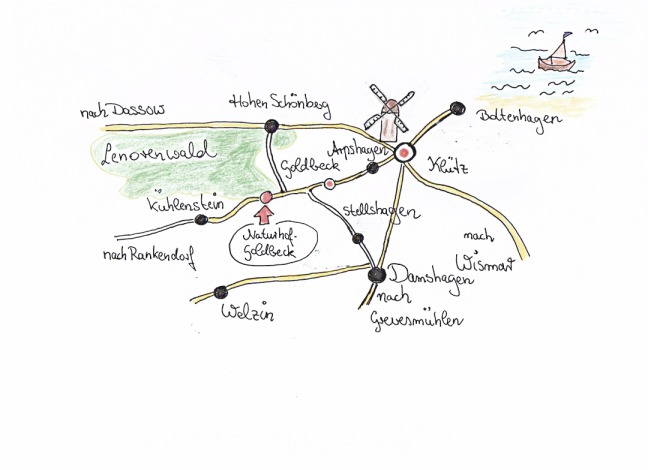 nach Dassow
Hohen Schönberg
Boltenhagen
Lenorenwald
Goldbeck
Arpshagen
Klütz
Kühlenstein
Stellshagen
nach Rankendorf
Naturhof-
Goldbeck
nach
Wismar
Damshagen
nach
Grevesmühlen
Welzin